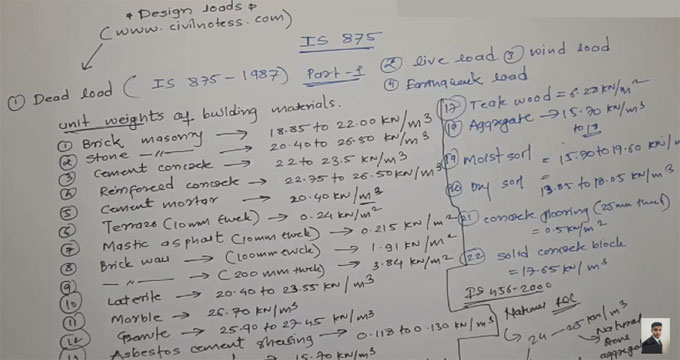 * Design loads *
(www.civilnotess.com)
IS 875
① Dead load (IS 875-1987) Part-I
② live load ③ wind load
④ Earthquack load
unit weights of building materials.
① Brick masonry → 18.85 to 22.00 KN/m³
② Stone —〃— → 20.40 to 26.50 KN/m³
③ Cement concrete → 22 to 23.5 KN/m³
④ Reinforced concrete → 22.75 to 26.50 KN/m³
⑤ Cement mortar → 20.40 KN/m³
⑥ Terrazo (10mm thick) → 0.24 KN/m²
⑦ Mastic asphalt (10mm thick) → 0.215 KN/m²
⑧ Brick wall → (100mm thick) → 1.91 KN/m²
⑨ —〃— → (200mm thick) → 3.84 KN/m²
⑩ Laterite → 20.40 to 23.55 KN/m³
⑪ Marble → 26.70 KN/m³
⑫ Granite → 25.90 to 27.45 KN/m³
Asbestos cement sheeting → 0.118 to 0.130 KN/m²
→ 15.70 KN/m³
⑰ Teak wood = 6.28 KN/m²
⑱ Aggregate → 15.70 KN/m³
to 19
⑲ Moist soil = 15.70 to 19.60 KN/m³
⑳ Dry soil = 13.85 to 18.05 KN/m³
㉑ concrete flooring (25mm thick)
= 0.5 KN/m²
㉒ solid concrete block
= 17.65 KN/m³
IS 456-2000
Natural
→ 24 - 25 KN/m³
Natural
stone
aggregate